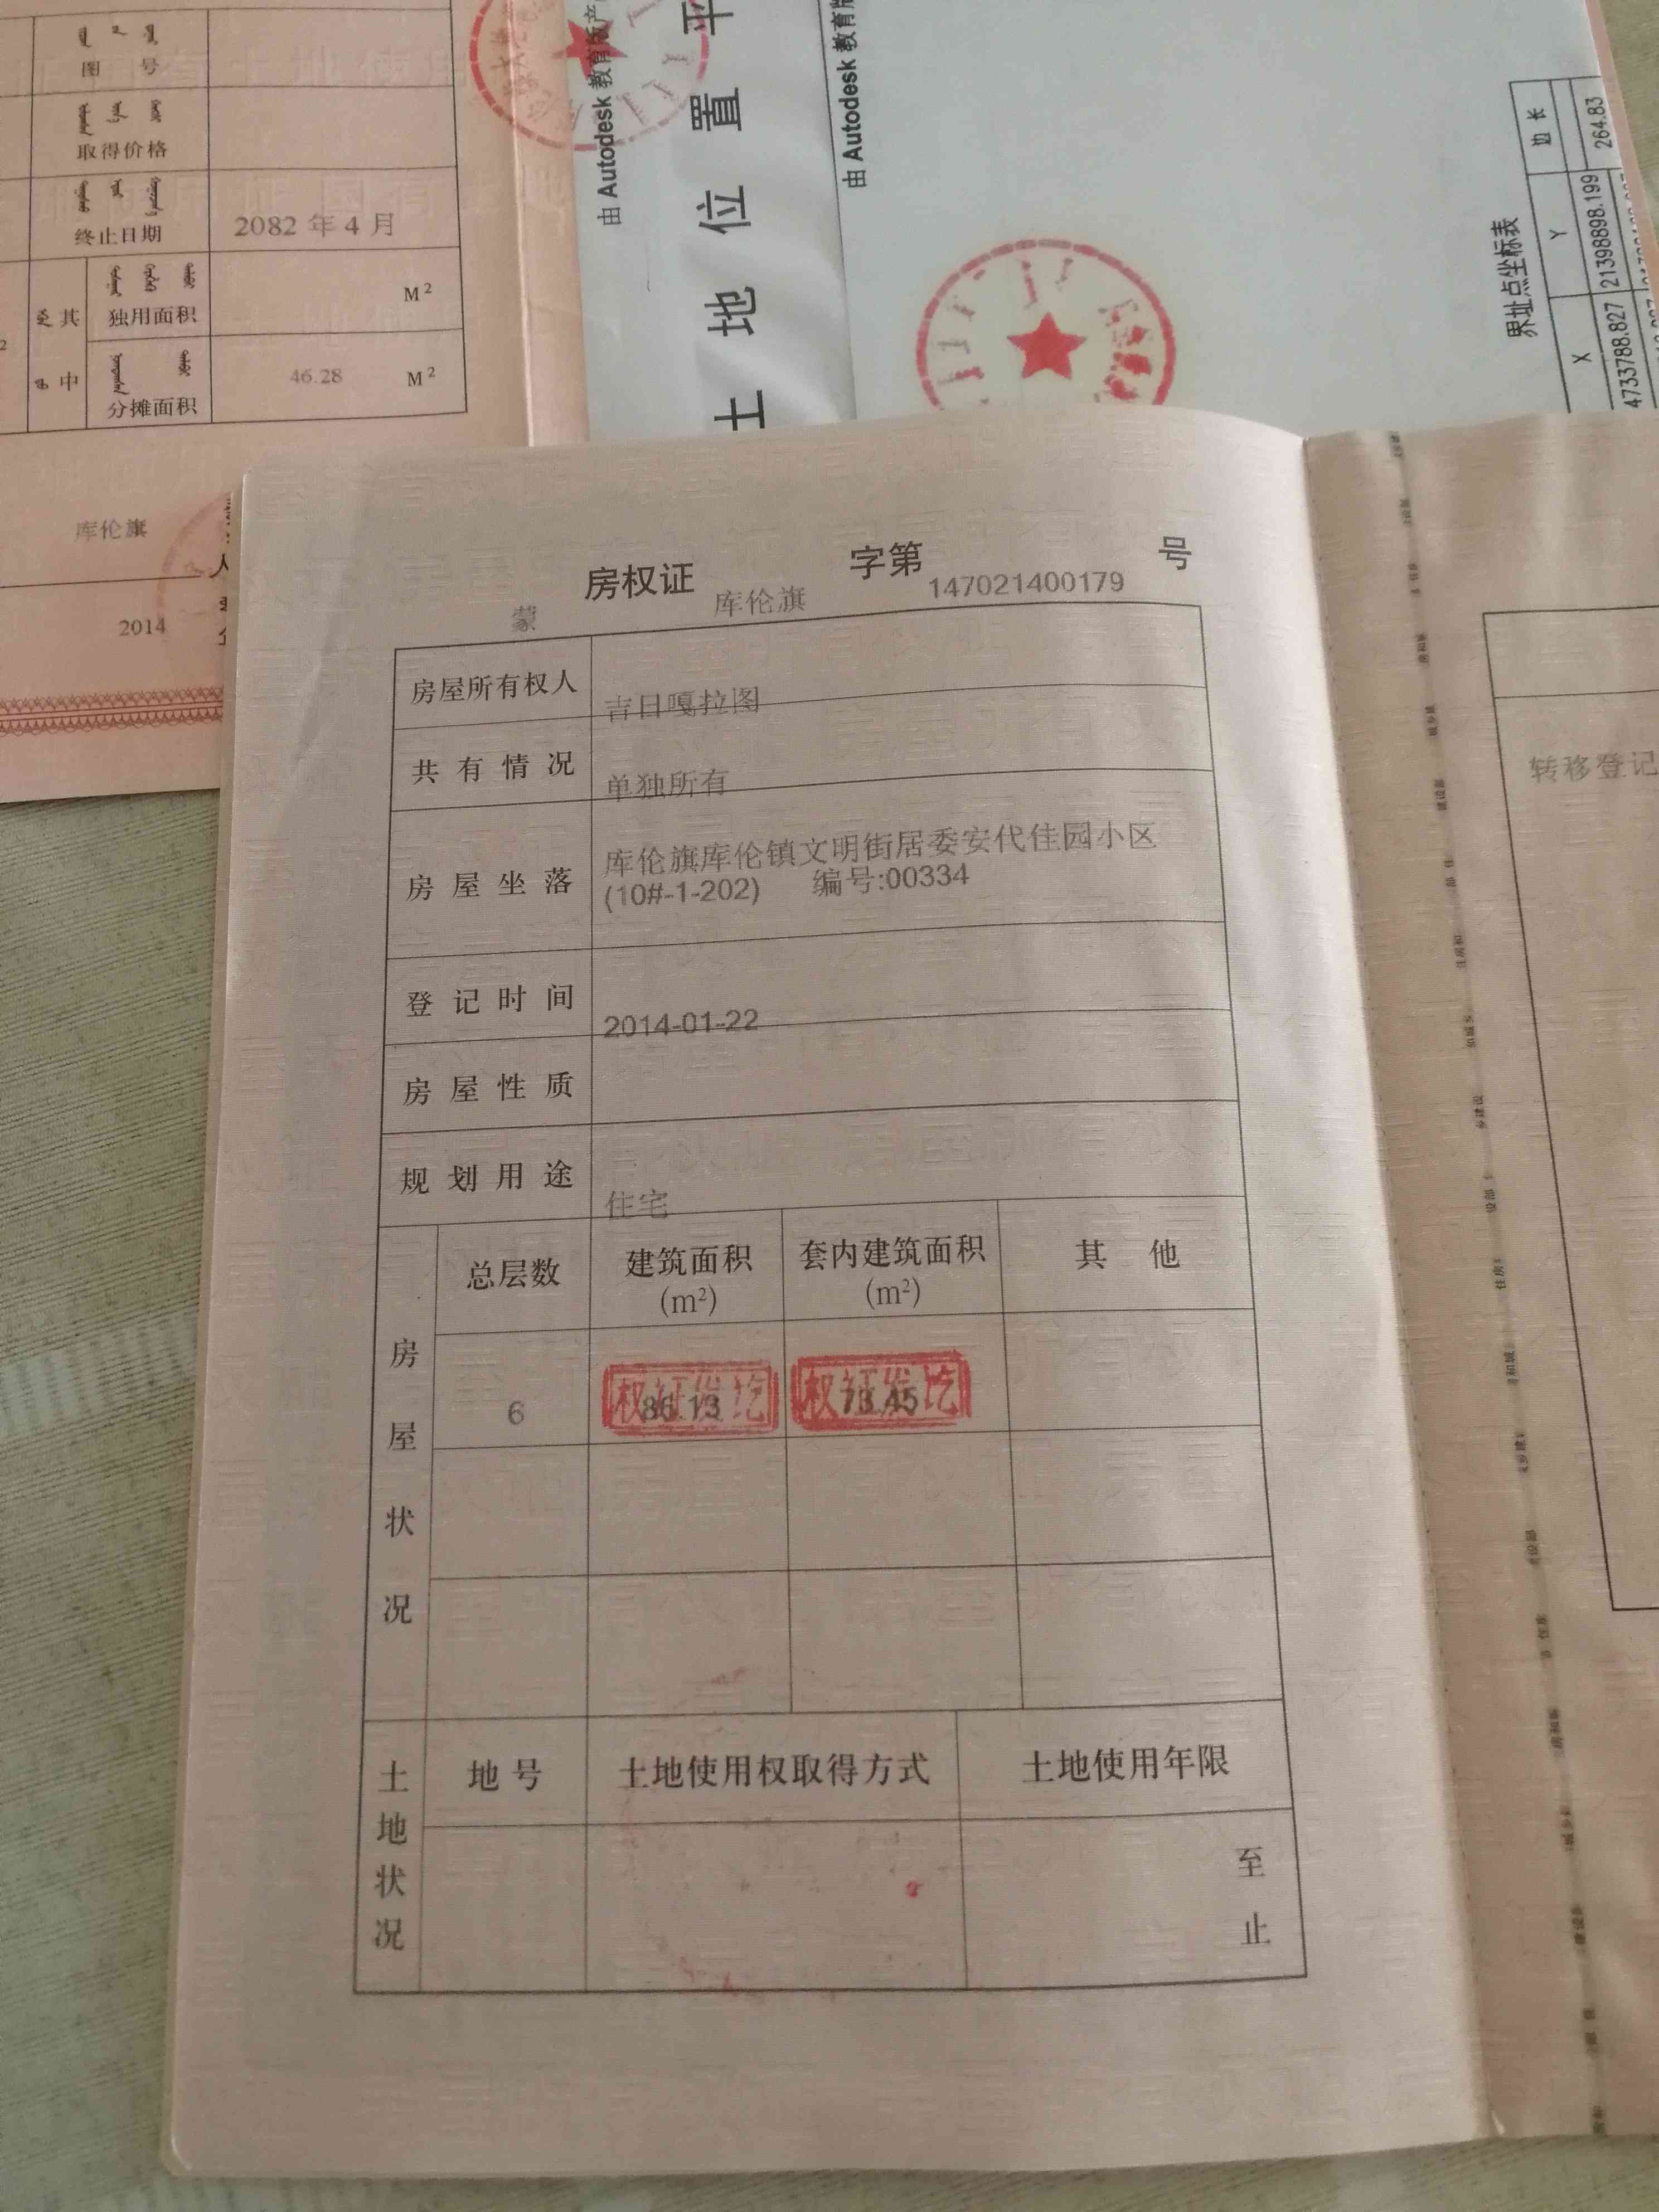 图 号
取得价格
终止日期
2082 年 4 月
其
中
独用面积
M²
分摊面积
46.28
M²
库伦旗
2014
由 Autodesk 教育版产
土 地 位 置 平
由 Autodesk 教育版
界址点坐标表
X
Y
边 长
4733788.827
21398898.199
264.83
房权证
字第
号
蒙
库伦旗
147021400179
房屋所有权人
吉日嘎拉图
共 有 情 况
单独所有
房 屋 坐 落
库伦旗库伦镇文明街居委安代佳园小区
(10#-1-202) 编号:00334
登 记 时 间
2014-01-22
房 屋 性 质
规 划 用 途
住宅
房屋状况
总层数
建筑面积
(m²)
套内建筑面积
(m²)
其 他
6
86.13
权证发讫
73.45
权证发讫
土地状况
地 号
土地使用权取得方式
土地使用年限
至
止
转移登记